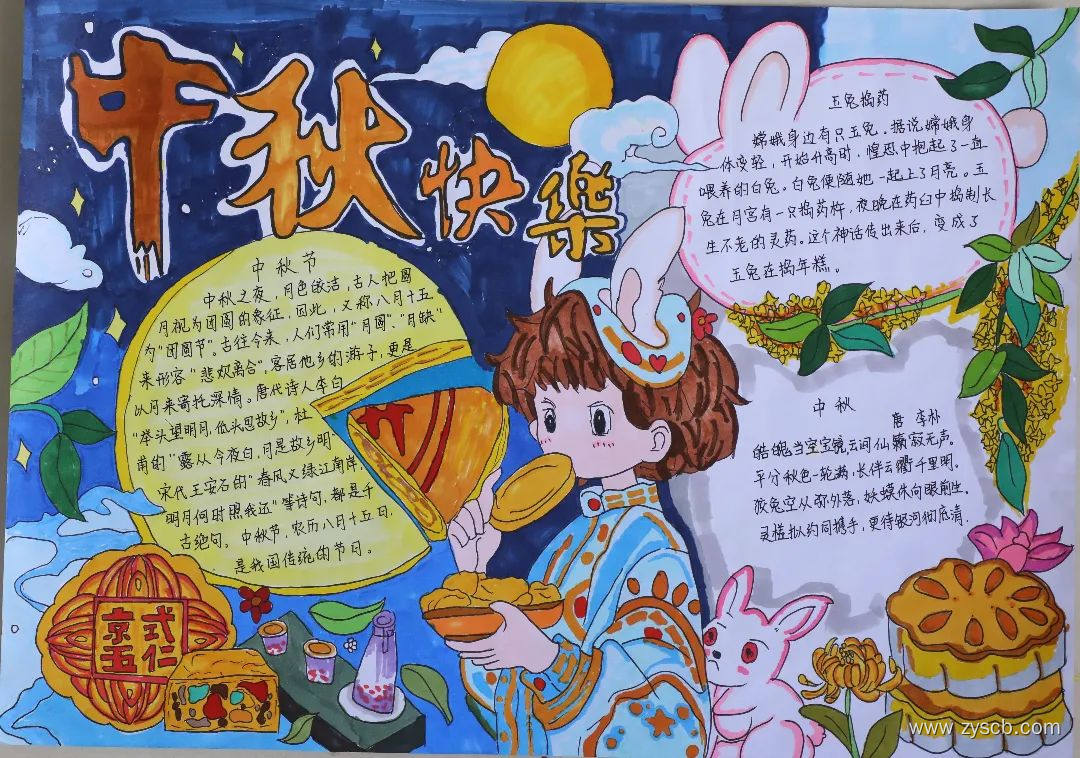 中秋快樂
中秋节
中秋之夜,月色皎洁,古人把圆
月视为团圆的象征,因此,又称八月十五
为"团圆节"。古往今来,人们常用"月圆"、"月缺"
来形容"悲欢离合",客居他乡的游子,更是
以月来寄托深情。唐代诗人李白
"举头望明月,低头思故乡",杜
甫的"露从今夜白,月是故乡明"
宋代王安石的"春风又绿江南岸,
明月何时照我还"等诗句,都是千
古绝句。中秋节,农历八月十五日,
是我国传统的节日。
京式
五仁
玉兔捣药
嫦娥身边有只玉兔。据说嫦娥身
体变轻,开始升高时,惶恐中抱起了一直
喂养的白兔。白兔便随她一起上了月亮。玉
兔在月宫有一只捣药杵,夜晚在药臼中捣制长
生不老的灵药。这个神话传出来后,变成了
玉兔在捣年糕。
中秋
唐 李朴
皓魄当空宝镜,云间仙籁寂无声。
平分秋色一轮满,长伴云衢千里明。
狡兔空从弥外落,妖蟆休向眼前生。
灵槎拟约同携手,更待银河彻底清.
www.zyscb.com